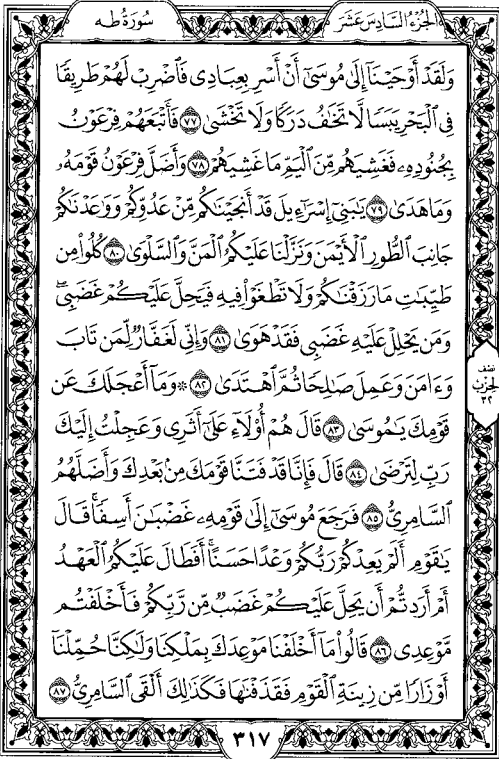 الجزء السادس عشر
سورة طه
وَلَقَدْ أَوْحَيْنَآ إِلَىٰ مُوسَىٰٓ أَنْ أَسْرِ بِعِبَادِى فَٱضْرِبْ لَهُمْ طَرِيقًا
فِى ٱلْبَحْرِ يَبَسًا لَّا تَخَٰفُ دَرَكًا وَلَا تَخْشَىٰ ٧٧ فَأَتْبَعَهُمْ فِرْعَوْنُ
بِجُنُودِهِۦ فَغَشِيَهُم مِّنَ ٱلْيَمِّ مَا غَشِيَهُمْ ٧٨ وَأَضَلَّ فِرْعَوْنُ قَوْمَهُۥ
وَمَا هَدَىٰ ٧٩ يَٰبَنِىٓ إِسْرَٰٓءِيلَ قَدْ أَنجَيْنَٰكُم مِّنْ عَدُوِّكُمْ وَوَٰعَدْنَٰكُمْ
جَانِبَ ٱلطُّورِ ٱلْأَيْمَنَ وَنَزَّلْنَا عَلَيْكُمُ ٱلْمَنَّ وَٱلسَّلْوَىٰ ٨٠ كُلُوا۟ مِن
طَيِّبَٰتِ مَا رَزَقْنَٰكُمْ وَلَا تَطْغَوْا۟ فِيهِ فَيَحِلَّ عَلَيْكُمْ غَضَبِى ۖ
وَمَن يَحْلِلْ عَلَيْهِ غَضَبِى فَقَدْ هَوَىٰ ٨١ وَإِنِّى لَغَفَّارٌ لِّمَن تَابَ
وَءَامَنَ وَعَمِلَ صَٰلِحًا ثُمَّ ٱهْتَدَىٰ ٨٢ ۞ وَمَآ أَعْجَلَكَ عَن
قَوْمِكَ يَٰمُوسَىٰ ٨٣ قَالَ هُمْ أُو۟لَآءِ عَلَىٰٓ أَثَرِى وَعَجِلْتُ إِلَيْكَ
رَبِّ لِتَرْضَىٰ ٨٤ قَالَ فَإِنَّا قَدْ فَتَنَّا قَوْمَكَ مِنۢ بَعْدِكَ وَأَضَلَّهُمُ
ٱلسَّامِرِىُّ ٨٥ فَرَجَعَ مُوسَىٰٓ إِلَىٰ قَوْمِهِۦ غَضْبَٰنَ أَسِفًا ۚ قَالَ
يَٰقَوْمِ أَلَمْ يَعِدْكُمْ رَبُّكُمْ وَعْدًا حَسَنًا ۚ أَفَطَالَ عَلَيْكُمُ ٱلْعَهْدُ
أَمْ أَرَدتُّمْ أَن يَحِلَّ عَلَيْكُمْ غَضَبٌ مِّن رَّبِّكُمْ فَأَخْلَفْتُم
مَّوْعِدِى ٨٦ قَالُوا۟ مَآ أَخْلَفْنَا مَوْعِدَكَ بِمَلْكِنَا وَلَٰكِنَّا حُمِّلْنَآ
أَوْزَارًا مِّن زِينَةِ ٱلْقَوْمِ فَقَذَفْنَٰهَا فَكَذَٰلِكَ أَلْقَى ٱلسَّامِرِىُّ ٨٧
نصف
الحزب
٣٢
٣١٧